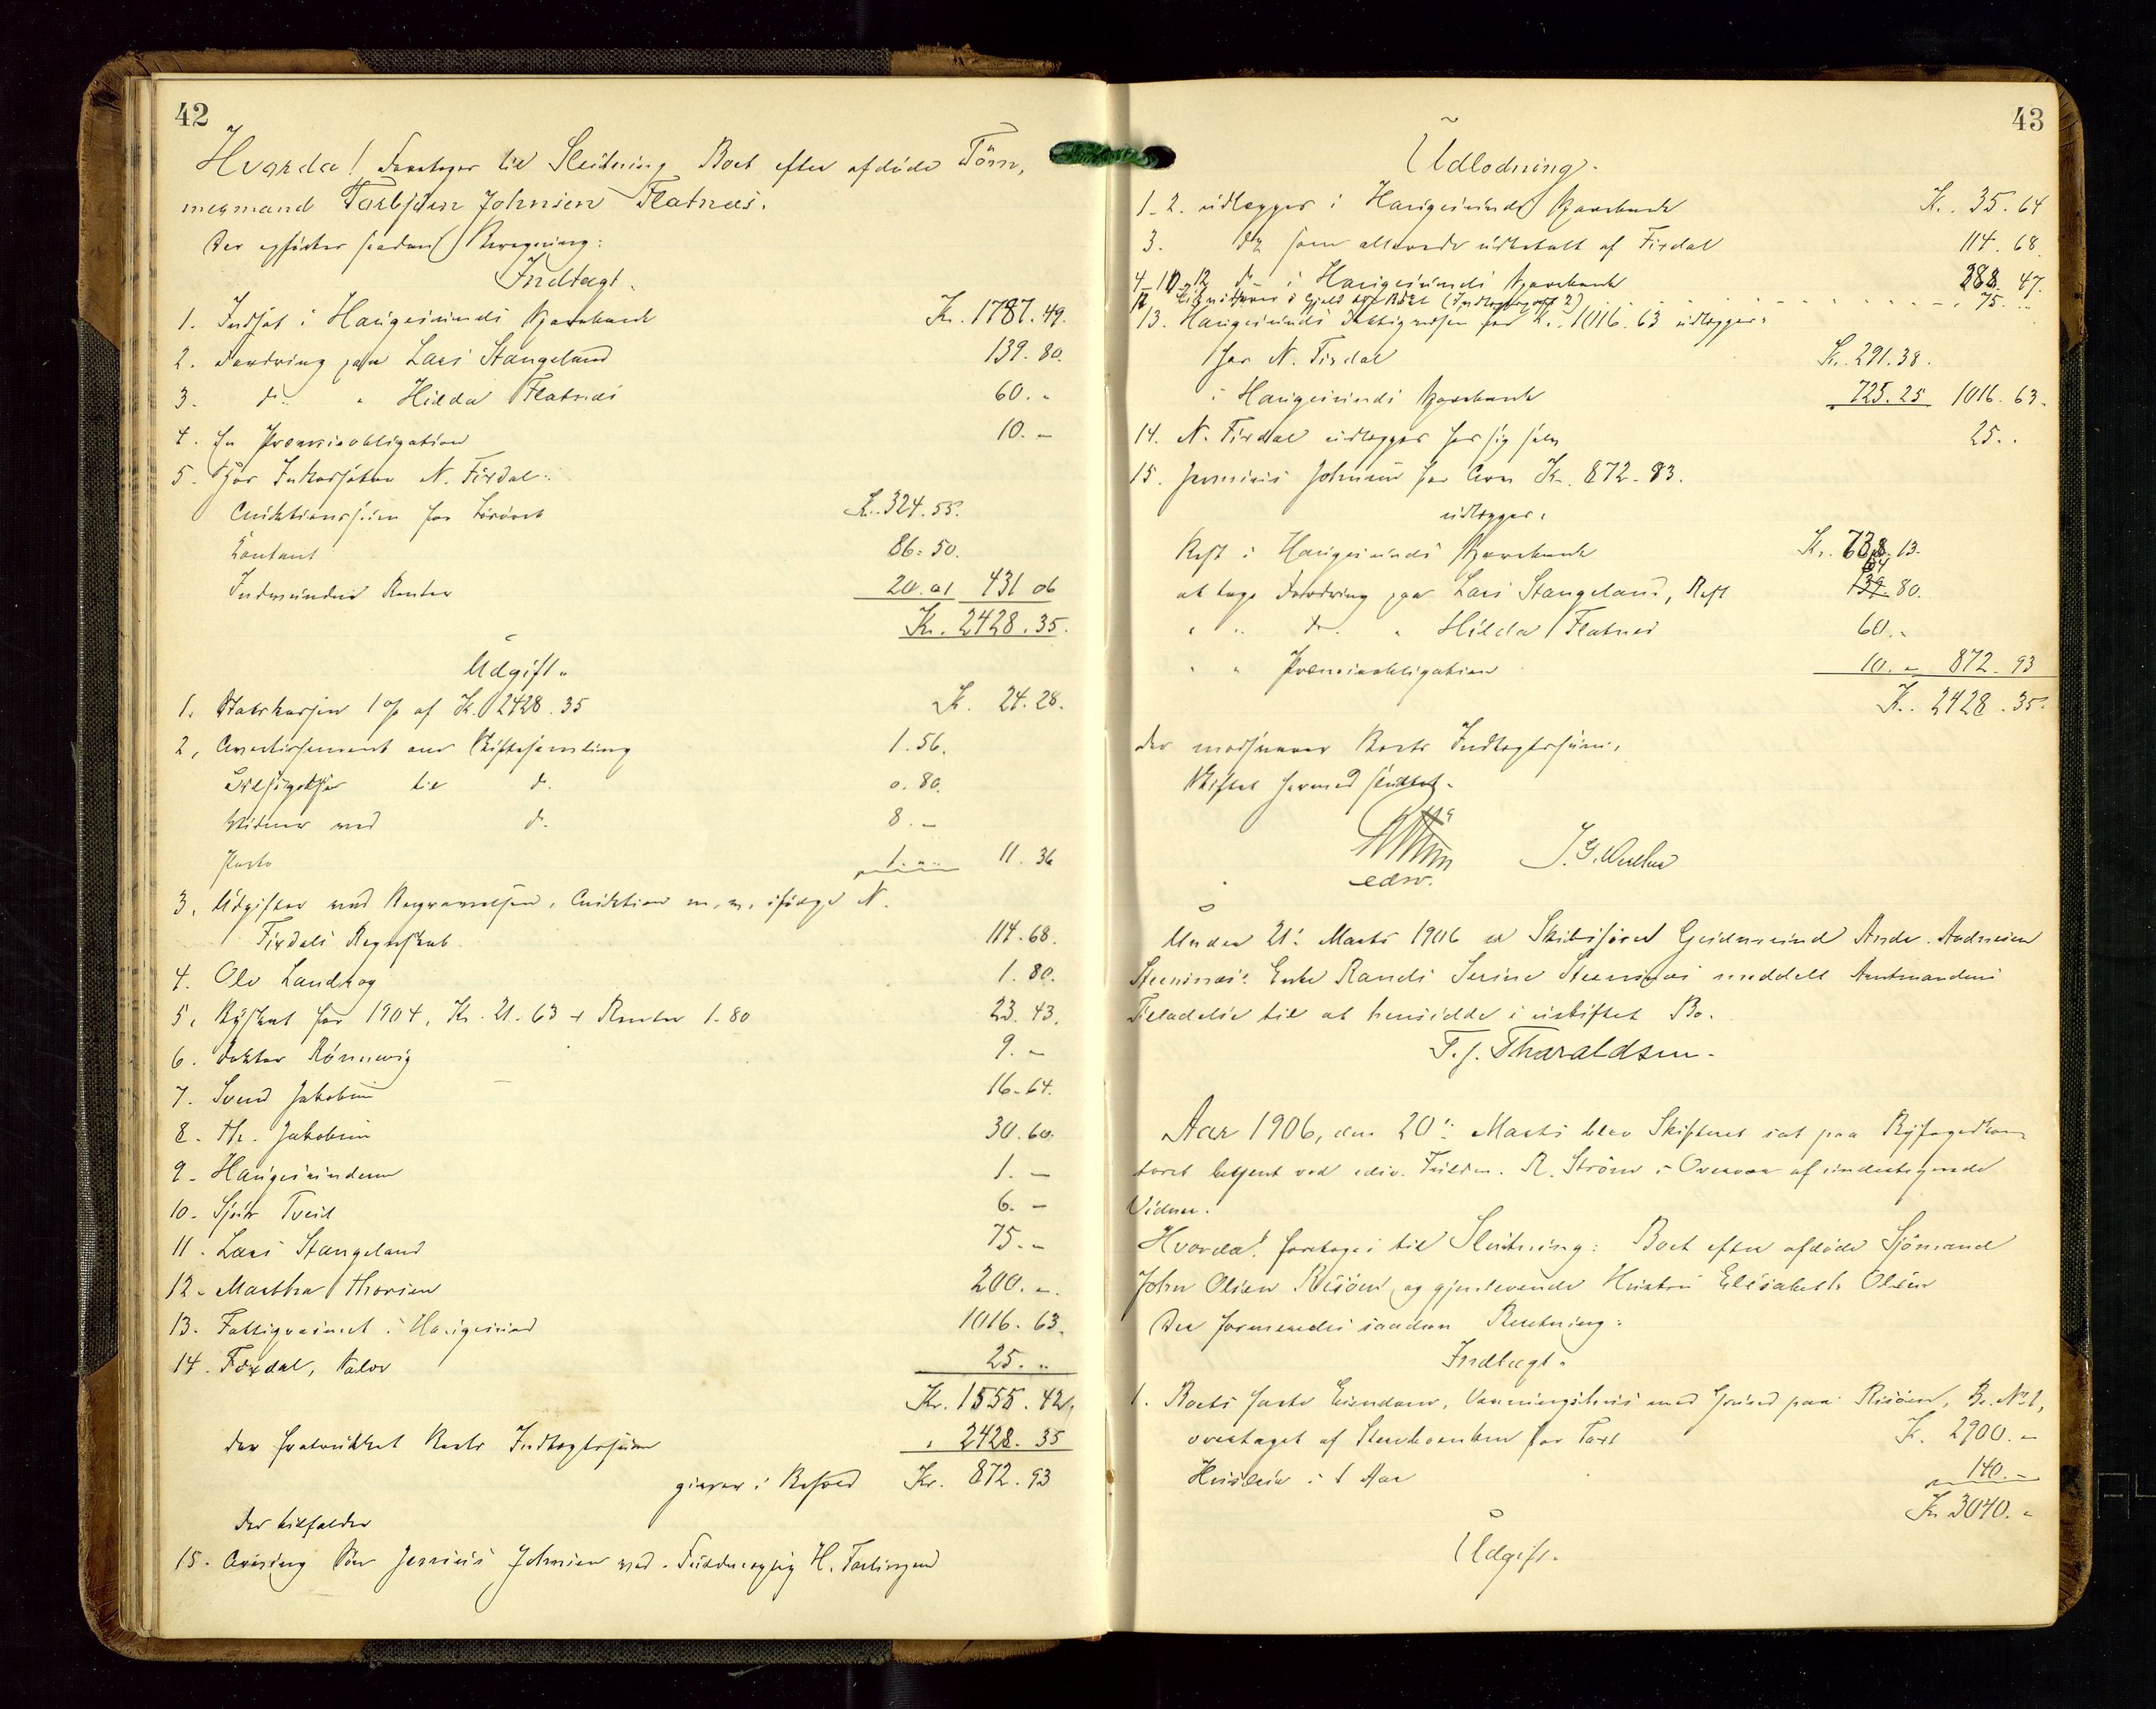 42
Hvorda! Foretoges til Slutning Boet efter afdøde Töm,
mermand Torbjørn Johnsen Flatnæs.
Der opførtes saadan Beregning:
Indtægt.
1. Indskt i Haugesunds Sparebank Kr. 1787.49.
2. Fordring paa Lars Stangeland 139.80.
3. do. " Hilda Flatnæs 60. "
4. En Præmieobligation 10. –
5. Hos Inkassator N. Fixdal:
Auktionssum for Løsøret Kr. 324.55.
Kontant 86.50.
Indvundne Renter 20.01 431 06
Kr. 2428.35.
Udgift.
1. Statskassen 1 % af Kr. 2428.35 Kr. 24.28.
2. Avertissement om Skiftesamling 1.56.
Tilsigelse til do. 0.80.
Vidner ved do. 8. –
Porto 1. " 11.36
3. Udgifter ved Begravelsen, Auktion m. m. ifølge N.
Fixdals Regnskab 114.68.
4. Ole Landhog 1.80.
5. Byskat for 1904, Kr. 21.63 + Renter 1.80 23.43.
6. Doktor Rönnevig 9. –
7. Svend Jakobsen 16.64.
8. Th. Jakobsen 30.60.
9. Haugesunderen 1. –
10. Sjur Tveit 6. –
11. Lars Stangeland 75. –
12. Martha Thorsen 200. –
13. Fattigvæsenet i Haugesund 1016.63.
14. Fixdal, Salær 25. "
Kr. 1555.42,
der fratrukket Boets Indtægtssum " 2428.35
giver i Behold Kr. 872.93
der tilfalder
15. Arving Søn Jermias Johnsen ved
43
Udlodning.
1-2. udlægges i Haugesunds Sparebank Kr. 35.64
3. do som allerede udbetalt af Fixdal 114.68
4-10, 12 do i Haugesunds Sparebank 288.47.
11 Likvideres i Gjeld til Boet (Indtægtspost 2) 75. "
13. Haugesunds Fattigvæsen for Kr. 1016.63 udlægges:
hos N. Fixdal Kr. 291.38.
i Haugesunds Sparebank 725.25 1016.63.
14. N. Fixdal udlægges hos sig selv 25. "
15. Jermias Johnsen for Arv Kr. 872.93.
udlægges:
Rest i Haugesunds Sparebank Kr. 738.13.
at tage Fordring paa Lars Stangeland, Rest 64
139.80.
" " do. " Hilda Flatnæs 60. "
" " Præmieobligation 10. " 872.93
Kr. 2428.35.
der modsvarer Boets Indtægtssum.
Skiftet hermed sluttet.
edsv.
Under 21. Marts 1906 er Skibsfører Gudmund Andr. Andreasen
Steensnæs' Enke Randi Serine Steensnæs meddelt Amtmandens
Tilladelse til at hensidde i uskiftet Bo.
T. J. Tharaldsen.
Aar 1906, den 20. Marts blev Skifteret sat paa Byfogedkon,
toret betjent ved edsv. Fuldm. R. Ström i Overvær af undertegnede
Vidner.
Hvorda! foretoges til Slutning: Boet efter afdøde Sjömand
John Olsen Risöen og gjenlevende Hustru Elisabeth Olsen
Der formeredes saadan Beretning:
Indtægt.
1. Boets faste Eiendom, Vaaningshus med Grund paa Risöen, Br. No 1,
overtaget af Stervboenken for Taxt Kr. 2900. –
Husleie i 1 Aar 140. –
Kr. 3040. –
Udgift.